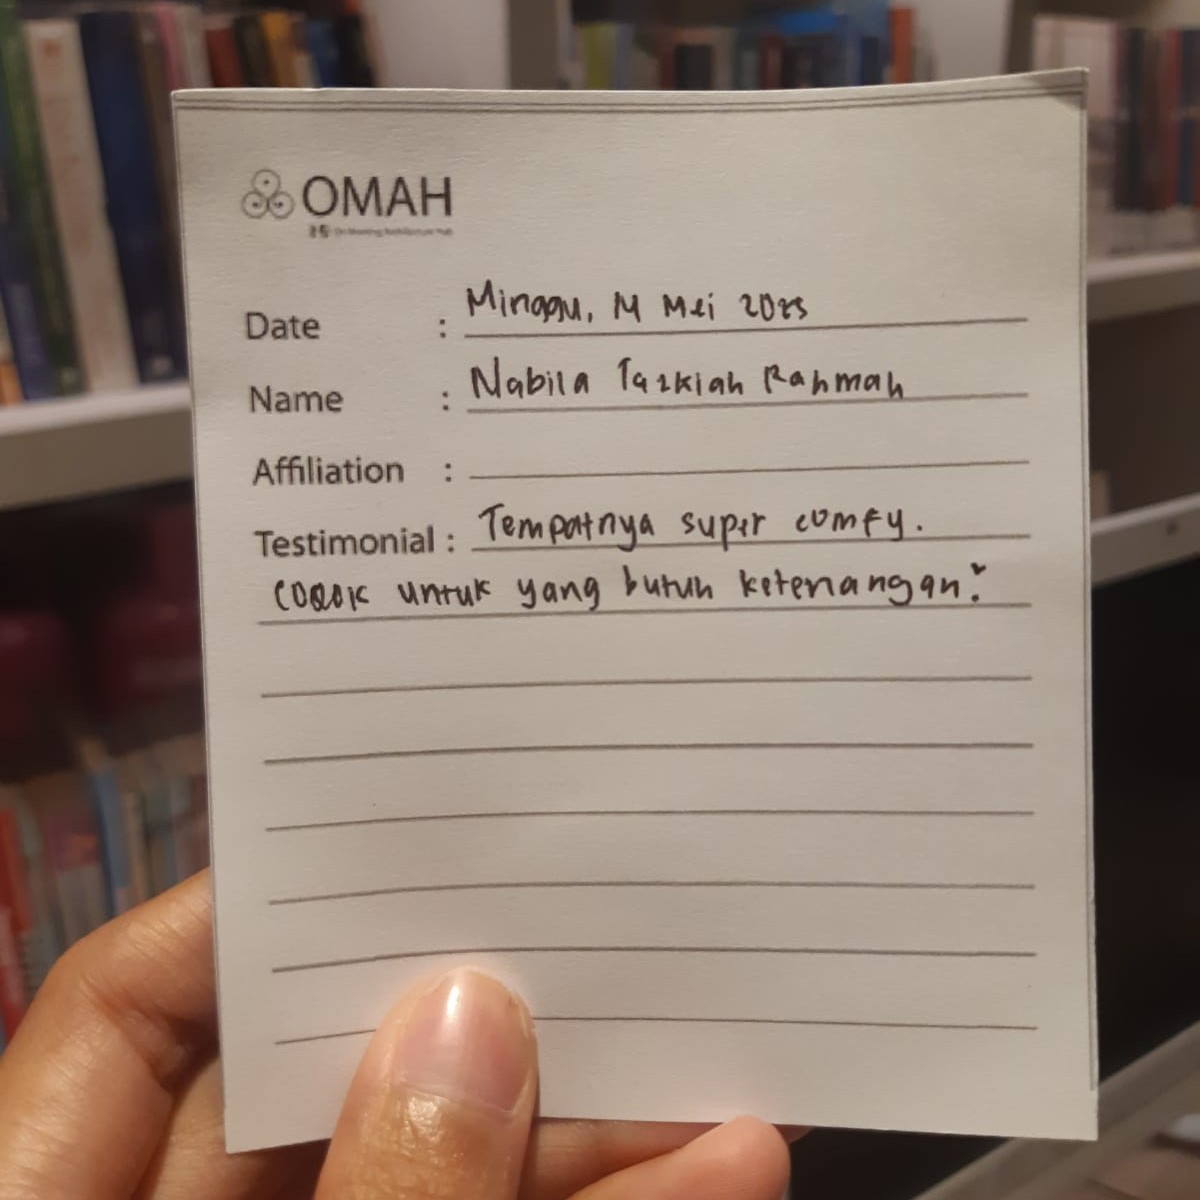 OMAH
Date : Minggu, 14 Mei 2023
Name : Nabila Tazkiah Rahmah
Affiliation :
Testimonial : Tempatnya super comfy.
cocok untuk yang butuh ketenangan!